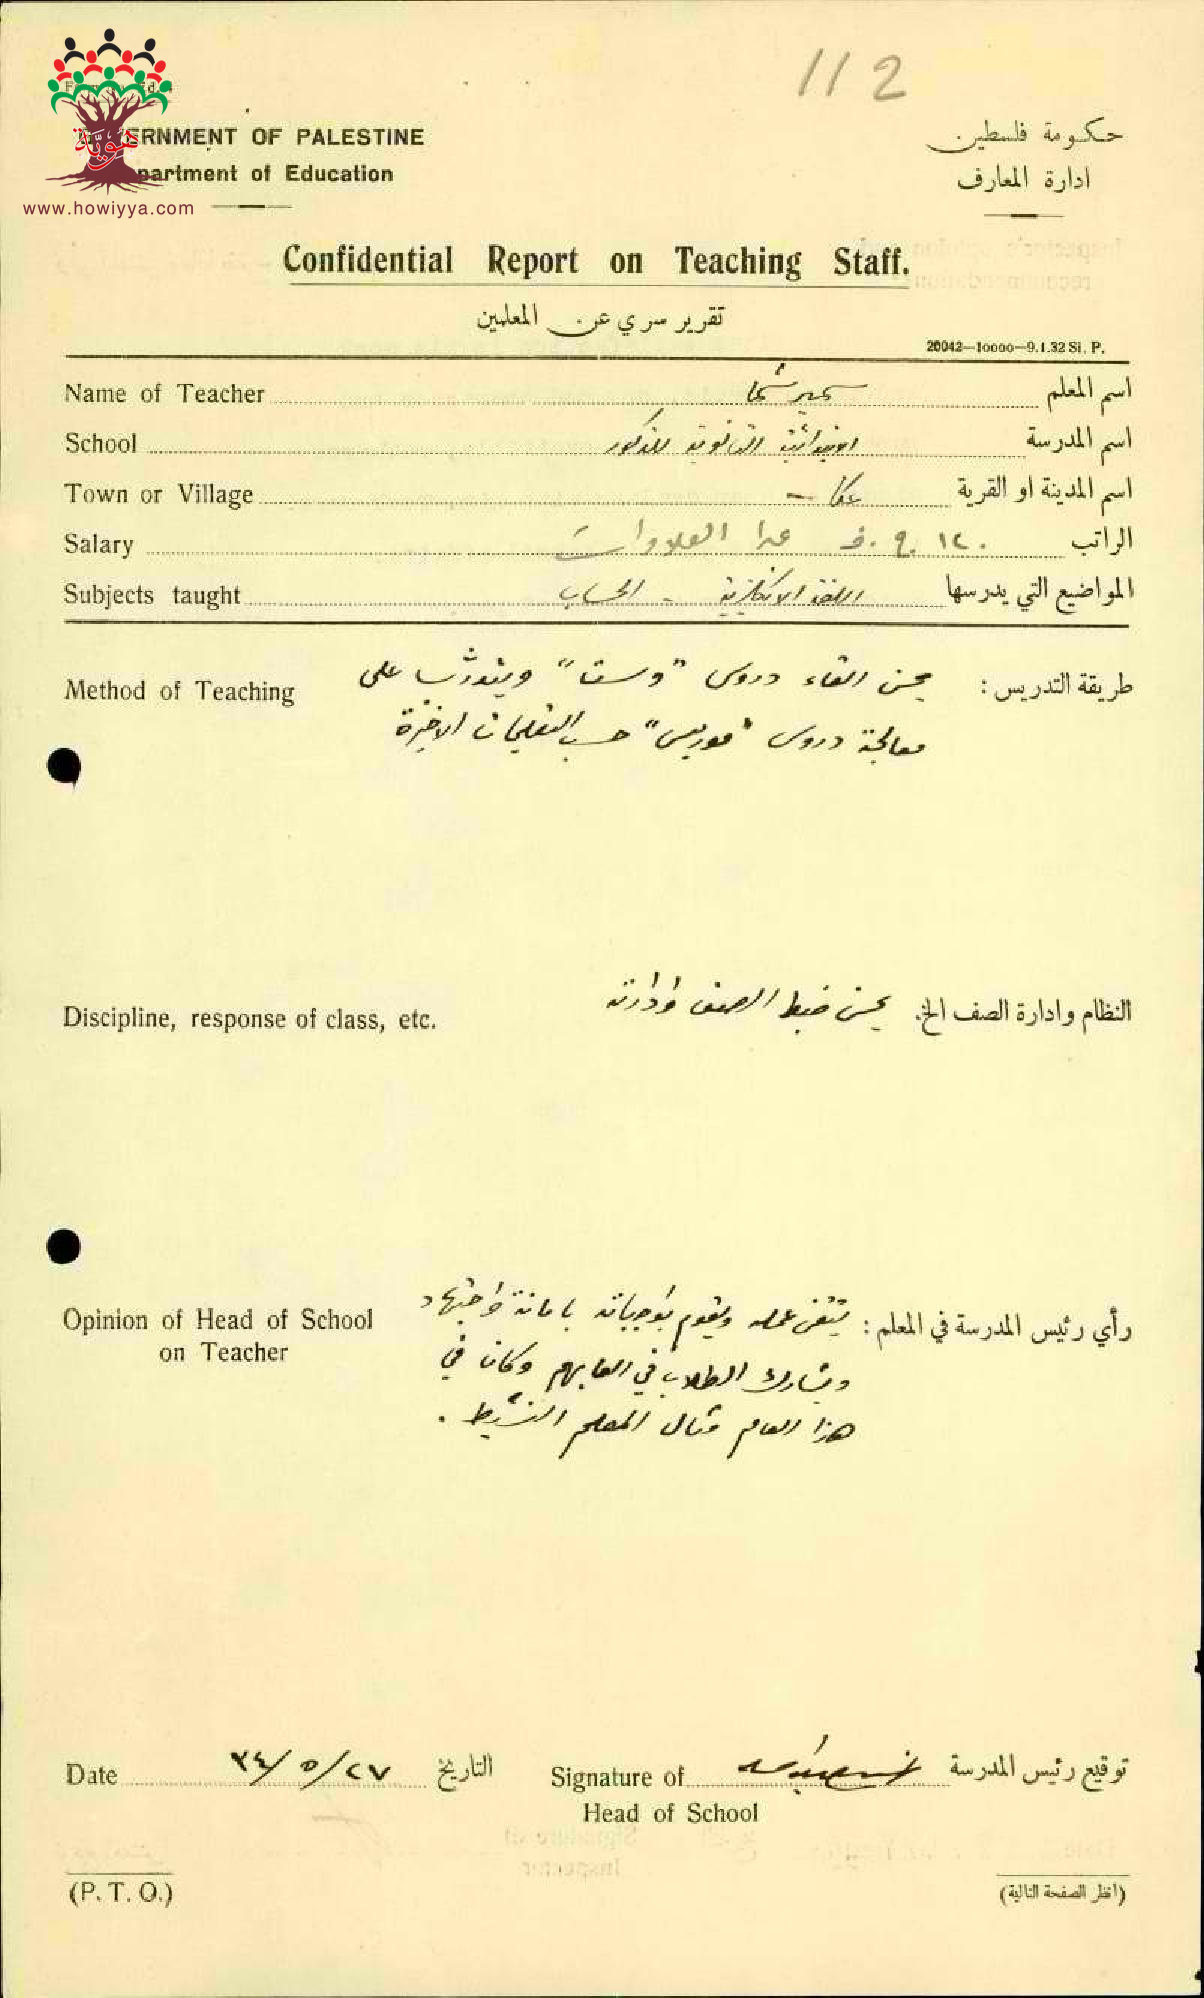 112
GOVERNMENT OF PALESTINE
Department of Education
حكومة فلسطين
ادارة المعارف
هوية
www.howiyya.com
Confidential Report on Teaching Staff.
تقرير سري عن المعلمين
20042—10000—9.1.32 Si. P.
Name of Teacher سمير شما اسم المعلم
School الثانوية للذكور اسم المدرسة
Town or Village عكا اسم المدينة او القرية
Salary ١٢٠ ج. ف عدا العلاوات الراتب
Subjects taught اللغة الانكليزية - الحساب المواضيع التي يدرسها
Method of Teaching طريقة التدريس : يحسن القاء دروس "وست" ويتدرب على
معالجة دروس "موريس" حسب التعليمات الاخيرة
Discipline, response of class, etc. النظام وادارة الصف الخ. يحسن ضبط الصف وادارته
Opinion of Head of School
on Teacher
رأي رئيس المدرسة في المعلم : يتقن عمله ويقوم بواجباته بامانة واجتهاد
ويشارك الطلاب في العابهم وكان في
هذا العام مثال المعلم النشيط .
Date ٢٧/٥/٣٤ التاريخ
Signature of
Head of School
توقيع رئيس المدرسة
(P. T. O.)
(انظر الصفحة التالية)